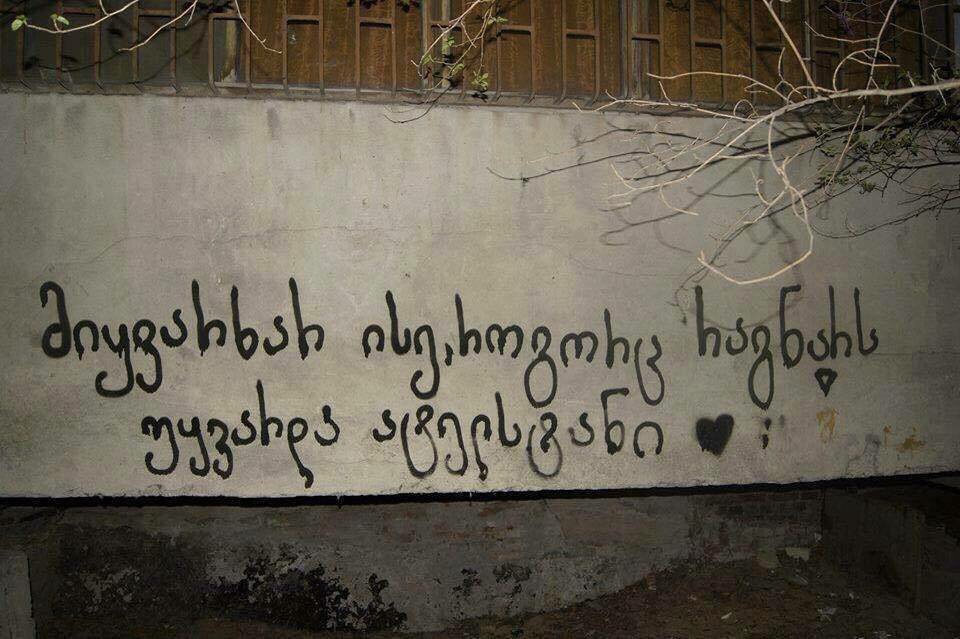 მიყვარხარ ისე,როგორც რაგნარს
უყვარდა ატელსტანი ♥ ;